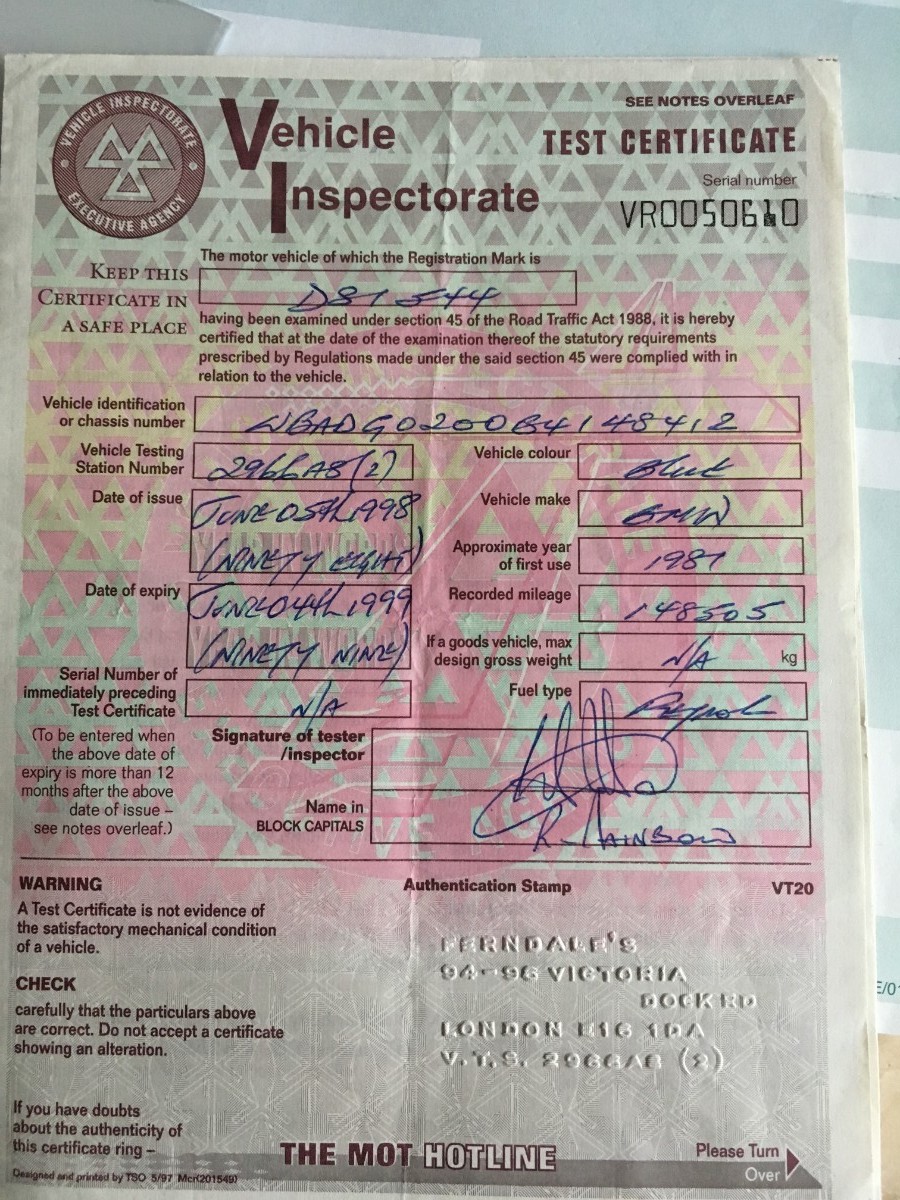 VEHICLE INSPECTORATE
EXECUTIVE AGENCY
Vehicle
Inspectorate
SEE NOTES OVERLEAF
TEST CERTIFICATE
Serial number
VR0050610
KEEP THIS
CERTIFICATE IN
A SAFE PLACE
The motor vehicle of which the Registration Mark is
DSI 544
having been examined under section 45 of the Road Traffic Act 1988, it is hereby
certified that at the date of the examination thereof the statutory requirements
prescribed by Regulations made under the said section 45 were complied with in
relation to the vehicle.
Vehicle identification
or chassis number
WBADG0200B4148412
Vehicle Testing
Station Number
2966AB (2)
Vehicle colour
Blue
Date of issue
JUNE 05th 1998
(NINETY EIGHT)
Vehicle make
BMW
Approximate year
of first use
1987
Date of expiry
JUNE 04th 1999
(NINETY NINE)
Recorded mileage
148505
If a goods vehicle, max
design gross weight
N/A
kg
Serial Number of
immediately preceding
Test Certificate
N/A
Fuel type
Petrol
(To be entered when
the above date of
expiry is more than 12
months after the above
date of issue –
see notes overleaf.)
Signature of tester
/inspector
Name in
BLOCK CAPITALS
R. RAINBOW
WARNING
A Test Certificate is not evidence of
the satisfactory mechanical condition
of a vehicle.
Authentication Stamp
VT20
CHECK
carefully that the particulars above
are correct. Do not accept a certificate
showing an alteration.
FERNDALE'S
94-96 VICTORIA
DOCK RD
LONDON E16 1DA
V.T.S. 2966AB (2)
If you have doubts
about the authenticity of
this certificate ring –
THE MOT HOTLINE
Please Turn
Over
Designed and printed by TSO 5/97 Mcr(201549)